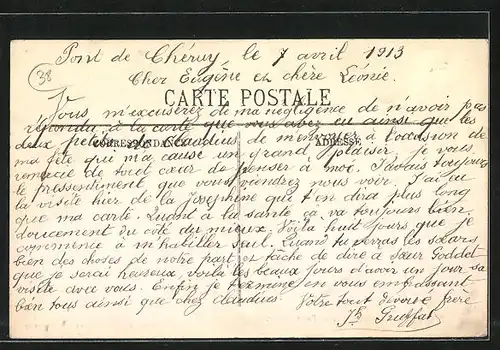 38
Pont de Chéruy le 7 avril 1913
Cher Eugène et chère Léonie.
CARTE POSTALE
Vous m'excuserez de ma négligence de n'avoir pas
répondu à la carte que vous avez eu ainsi que les
CORRESPONDANCE
ADRESSE
deux petits de Claudius de m'envoyer à l'occasion de
ma fête qui m'a cause un grand plaisir je vous
remercie de tout cœur de penser à moi. J'avais toujours
le pressentiment que vous viendrez nous voir. J'ai eu
la visite hier de la Joséphine qui t'en dira plus long
que ma carte. Quand à la santé ça va toujours bien
doucement du côté du mieux. Voilà huit jours que je
commence à m'habiller seul. Quand tu verras les sœurs
bien des choses de notre part et tâche de dire à sœur Goddet
que je serai heureux, voilà les beaux jours d'avoir un jour sa
visite avec vous. Enfin je termine en vous embrassant
bien tous ainsi que chez Claudius. Votre tout dévoué frère